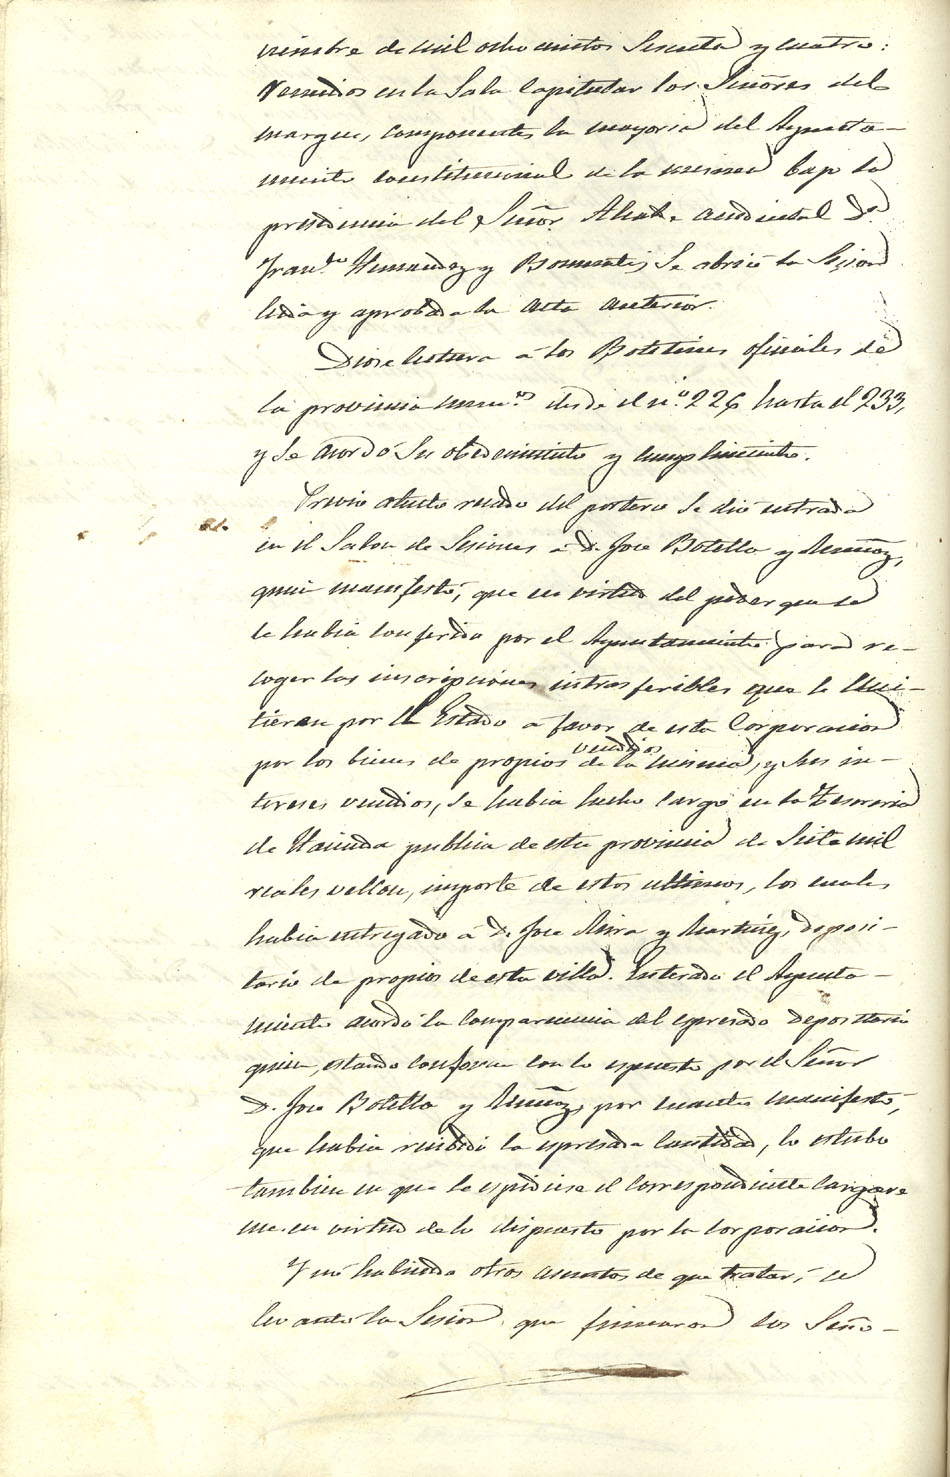 viembre de mil ochocientos Sesenta y cuatro:
reunidos en la Sala Capitular los Señores del
margen, componentes la mayoria del Ayunta-
miento constitucional de la misma bajo la
presidencia del Señor Alcalde accidental Dn
Franco Hernandez y Se abrió la Sesion
leida y aprobada la acta anterior.
Diose lectura á los Boletines oficiales de
la provincia numos desde el n.o 226 hasta el 233,
y Se acordó Su obedecimiento y cumplimiento.
Previo atento recado del portero Se dió entrada
en el Salon de Sesiones á D. Jose Botella y Muñoz,
quien manifestó, que en virtud del poder que se
le habia conferido por el Ayuntamiento para re-
coger las inscripciones intrasferibles que le
por el Estado a favor de esta Corporacion
por los bienes de propios vendidos de la misma, y sus in-
tereses vencidos, Se habia hecho cargo en la Tesoreria
de Hacienda publica de esta provincia de Siete mil
reales vellon, importe de estos ultimos, los cuales
habia entregado á D. Jose Mira y Martinez, deposi-
tario de propios de esta villa. Enterado el Ayunta-
miento acordó la comparecencia del espresado depositario
quien, estando conforme con lo espuesto por el Señor
D. Jose Botella y Muñoz, por cuanto manifestó,
que habia recibido la espresada cantidad, lo estubo
tambien en que le espidiese el correspondiente cargareme
me en virtud de lo dispuesto por la Corporacion.
Y nó habiendo otros asuntos de que tratar, se
levantó la Sesion que firmaron los Seño-